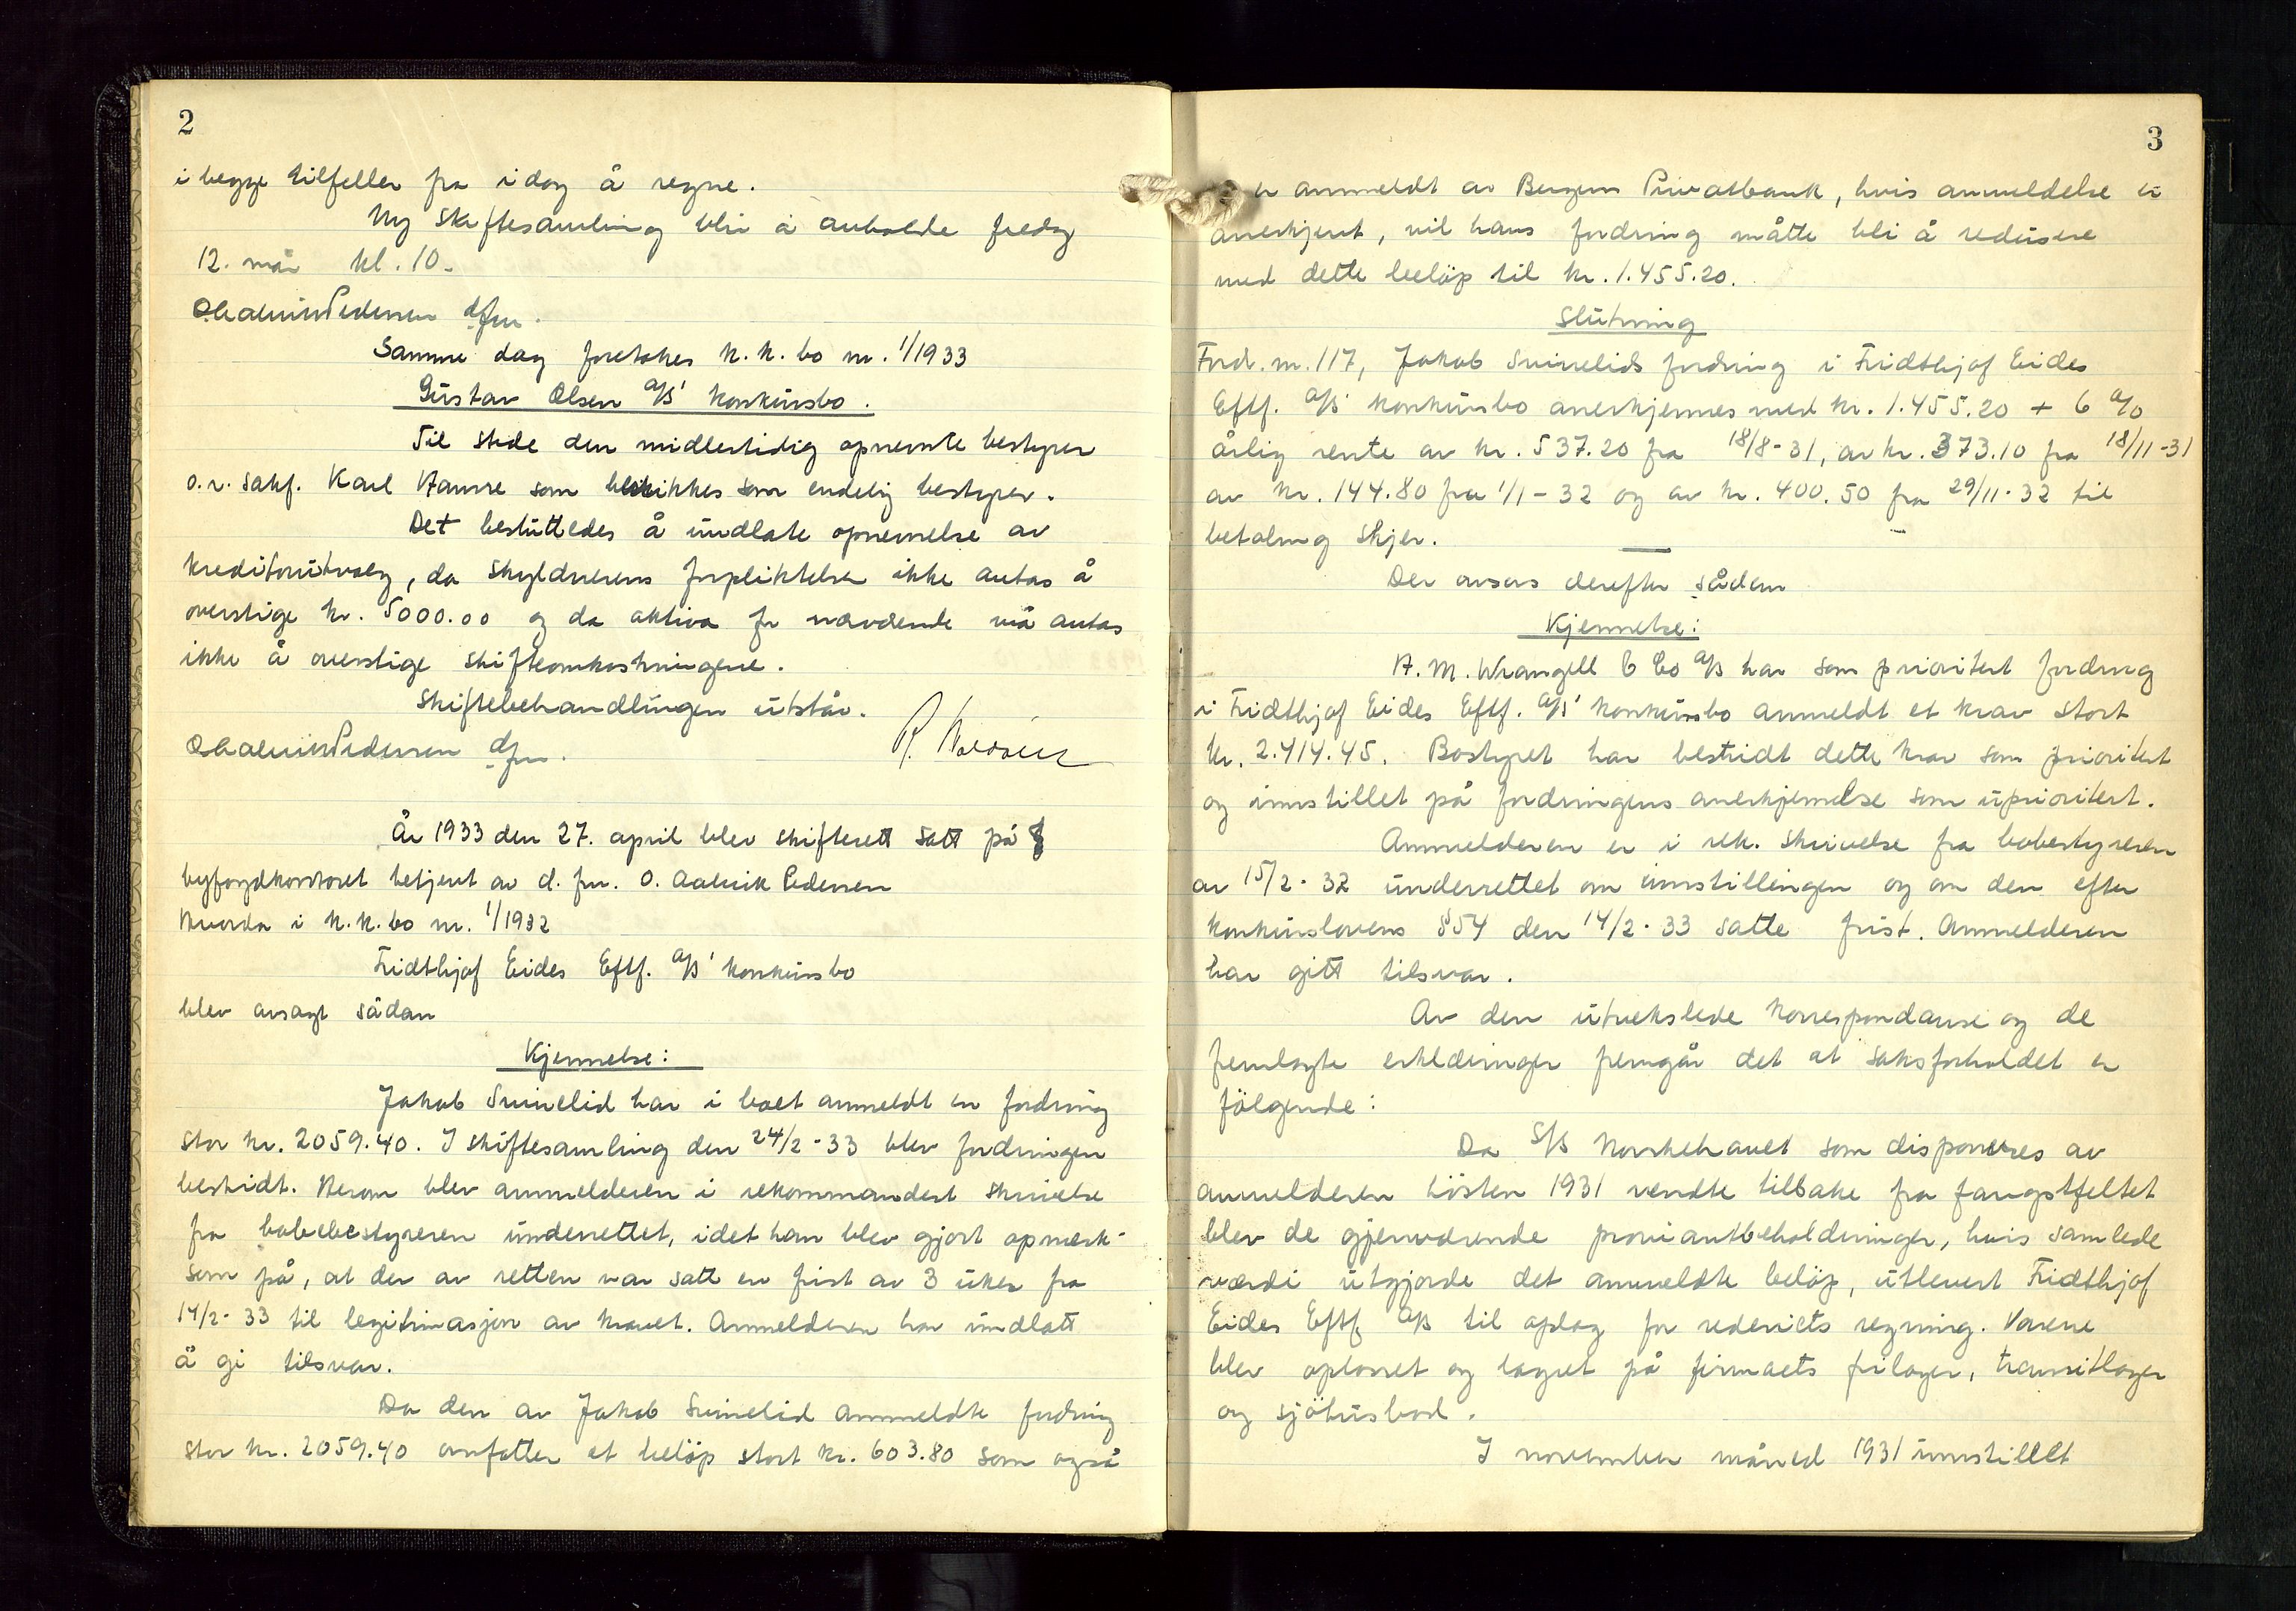 2
i begge tilfeller fra idag å regne.
Ny skiftesamling blir å anholde fredag
12. mai kl. 10.
O Aalvik Pedersen dfm.
Samme dag foretokes K.K. bo nr. 1/1933
Gustav Olsen A/S' konkursbo.
Til stede den midlertidig opnevnte bestyrer
o.r. sakf. Karl som beskikkes som endelig bestyrer.
Det besluttedes å undlate opnevnelse av
kreditorutvalg, da skyldnerens forpliktelser ikke antas å
overstige kr. 5000.00 og da aktiva for nærværende må antas
ikke å overstige skifteomkostningene.
Skiftebehandlingen utstår.
O Aalvik Pedersen dfm.
År 1933 den 27. april blev skifterett satt på
byfogdkontoret betjent av d. fm. O. Aalvik Pedersen
Hvorda i K.K. bo nr. 1/1932
Fridthjof Eides Eftf. A/S' konkursbo
blev avsagt sådan
Kjennelse:
Jakob Svinelid har i boet anmeldt en fordring
stor kr. 2059.40. I skiftesamling den 24/2-33 blev fordringen
bestridt. Herom blev anmelderen i rekommandert skrivelse
fra bobebestyreren underrettet, idet han blev gjort opmerk-
som på, at der av retten var satt en frist av 3 uker fra
14/2-33 til legitimasjon av kravet. Anmelderen har undlatt
å gi tilsvar.
Da den av Jakob Svinelid anmeldte fordring
stor kr. 2059.40 omfatter et beløp stort kr. 603.80 som også
3
er anmeldt av Bergens Privatbank, hvis anmeldelse er
anerkjent, vil hans fordring måtte bli å redusere
med dette beløp til kr. 1.455.20.
Slutning
Ford. nr. 117, Jakob Svinelids fordring i Fridthjof Eides
Eftf. A/S' konkursbo anerkjennes med kr. 1.455.20 + 6 %
årlig rente av kr. 537.20 fra 18/8-31, av kr. 373.10 fra 18/11-31
av kr. 144.80 fra 1/1-32 og av kr. 400.50 fra 29/11-32 til
betaling skjer.
Der avsas derefter sådan
Kjennelse:
H. M. Wrangell & Co A/S har som prioritert fordring
i Fridthjof Eides Eftf. A/S' konkursbo anmeldt et krav stort
kr. 2.414.45. Bostyret har bestridt dette krav som prioritert
og innstillet på fordringens anerkjennelse som uprioritert.
Anmelderen er i rek. skrivelse fra bobestyreren
av 15/2-32 underrettet om innstillingen og om den efter
konkurslovens §54 den 14/2-33 satte frist. Anmelderen
har gitt tilsvar.
Av den utvekslede korrespondanse og de
fremlagte erklæringer fremgår det at saksforholdet er
følgende:
Da S/S Norskehavet som disponeres av
anmelderen høsten 1931 vendte tilbake fra fangstfeltet
blev de gjenværende proviantbeholdninger, hvis samlede
værdi utgjorde det anmeldte beløp, utlevert Fridthjof
Eides Eftf A/S til oplag for rederiets regning. Varene
blev oplosset og lagret på firmaets frilager, transitlager
og sjøhusbod.
I november måned 1931 innstillet